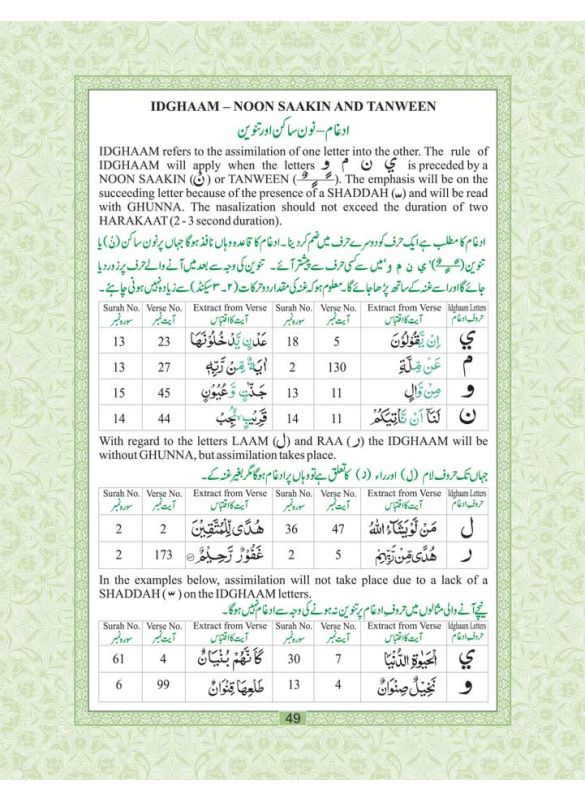 IDGHAAM – NOON SAAKIN AND TANWEEN
ادغام – نون ساکن اور تنوین
IDGHAAM refers to the assimilation of one letter into the other. The rule of
IDGHAAM will apply when the letters ي ن م و is preceded by a
NOON SAAKIN (نْ) or TANWEEN (ـًـٍـٌ). The emphasis will be on the
succeeding letter because of the presence of a SHADDAH (ّ) and will be read
with GHUNNA. The nasalization should not exceed the duration of two
HARAKAAT (2 - 3 second duration).
ادغام کا مطلب ہے ایک حرف کو دوسرے حرف میں ضم کر دینا۔ ادغام کا قاعدہ وہاں نافذ ہوگا جہاں پر نون ساکن (نْ) یا
تنوین (ـًـٍـٌ) 'ي ن م و' میں سے کسی حرف سے پیشتر آئے۔ تنوین کی وجہ سے بعد میں آنے والے حرف پر زور دیا
جائے گا اور اسے غنہ کے ساتھ پڑھا جائے گا۔ معلوم ہو کہ غنہ کی مقدار دو حرکات (۲-۳ سیکنڈ) سے زیادہ نہیں ہونی چاہئے۔
Surah No. Verse No. Extract from Verse Surah No. Verse No. Extract from Verse Idghaam Letters
سورہ نمبر آیت نمبر آیت کا اقتباس سورہ نمبر آیت نمبر آیت کا اقتباس حروف ادغام
13 23 عَدْنٍ يَّدْخُلُوْنَهَا 18 5 اِنْ يَّقُوْلُوْنَ ي
13 27 اٰيَةٌ مِّنْ رَّبِّهٖ 2 130 عَنْ مِّلَّةِ م
15 45 جَنّٰتٍ وَّعُيُوْنٍ 13 11 مِنْ وَّالٍ و
14 44 قَرِيْبٍ نُّجِبْ 14 11 لَنَآ اَنْ نَّاْتِيَكُمْ ن
With regard to the letters LAAM (ل) and RAA (ر) the IDGHAAM will be
without GHUNNA, but assimilation takes place.
جہاں تک حروف لام (ل) اور راء (ر) کا تعلق ہے تو وہاں پر ادغام ہوگا مگر بغیر غنہ کے۔
Surah No. Verse No. Extract from Verse Surah No. Verse No. Extract from Verse Idghaam Letters
سورہ نمبر آیت نمبر آیت کا اقتباس سورہ نمبر آیت نمبر آیت کا اقتباس حروف ادغام
2 2 هُدًى لِّلْمُتَّقِيْنَ 36 47 مَنْ لَّوْ يَشَآءُ اللّٰهُ ل
2 173 غَفُوْرٌ رَّحِيْمٌ 2 5 هُدًى مِّنْ رَّبِّهِمْ ر
In the examples below, assimilation will not take place due to a lack of a
SHADDAH (ّ) on the IDGHAAM letters.
نیچے آنے والی مثالوں میں حروف ادغام پر تنوین نہ ہونے کی وجہ سے ادغام نہیں ہوگا۔
Surah No. Verse No. Extract from Verse Surah No. Verse No. Extract from Verse Idghaam Letters
سورہ نمبر آیت نمبر آیت کا اقتباس سورہ نمبر آیت نمبر آیت کا اقتباس حروف ادغام
61 4 كَاَنَّهُمْ بُنْيَانٌ 30 7 الْحَيٰوةِ الدُّنْيَا ي
6 99 طَلْعِهَا قِنْوَانٌ 13 4 نَخِيْلٌ صِنْوَانٌ و
49